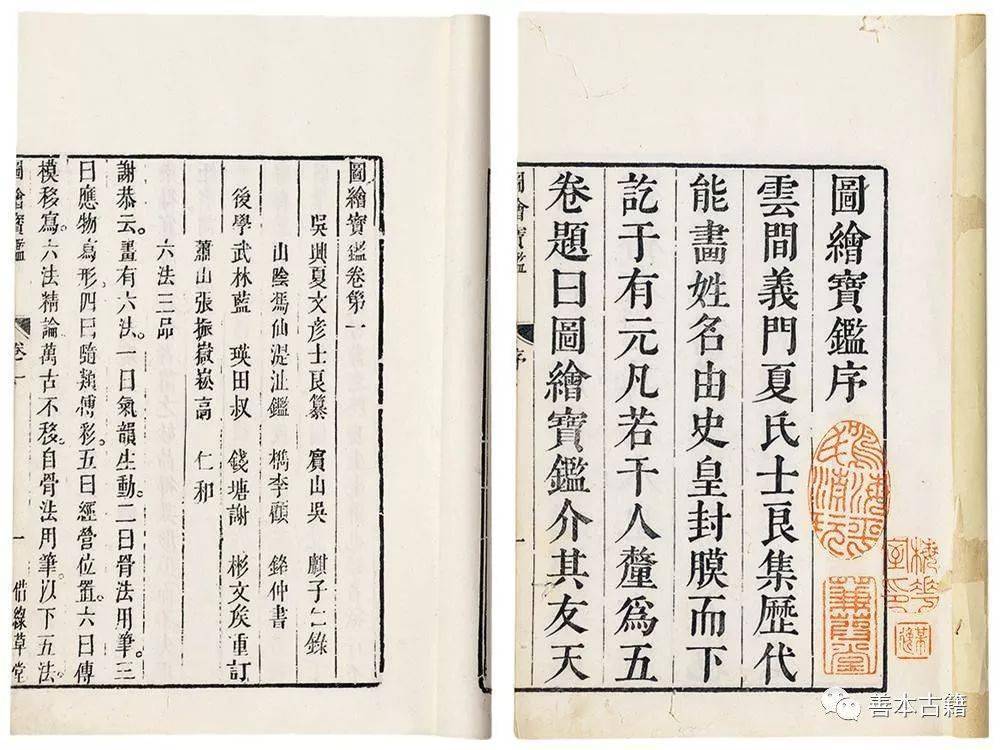 圖繪寶鑑序
雲間義門夏氏士良集歷代
能畫姓名由史皇封膜而下
訖于有元凡若干人釐爲五
卷題曰圖繪寶鑑介其友天
圖繪寶鑑 序 一
蒹葭堂
圖繪寶鑑卷第一
吳興夏文彥士良纂 寳山吳 麒子仁錄
山陰馮仙湜沚鑑 檇李顧 仲書
後學武林藍 瑛田叔 錢塘謝 彬文矦重訂
蕭山張振嶽崧高 仁和
六法三品
謝恭云。畫有六法。一曰氣韻生動。二曰骨法用筆。三
曰應物寫形。四曰隨類傅彩。五曰經營位置。六曰傳
模移寫。六法精論萬古不移。自骨法用筆。以下五法
圖繪寶鑑 卷一 一 借綠草堂
善本古籍